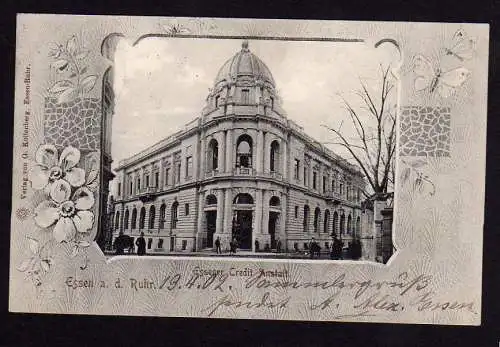 Verlag von G. Essen-Ruhr.
Essener Credit Anstalt.
Essen a. d. Ruhr. 19.4.02. Sammlergruß
sendet A. Alex, Essen